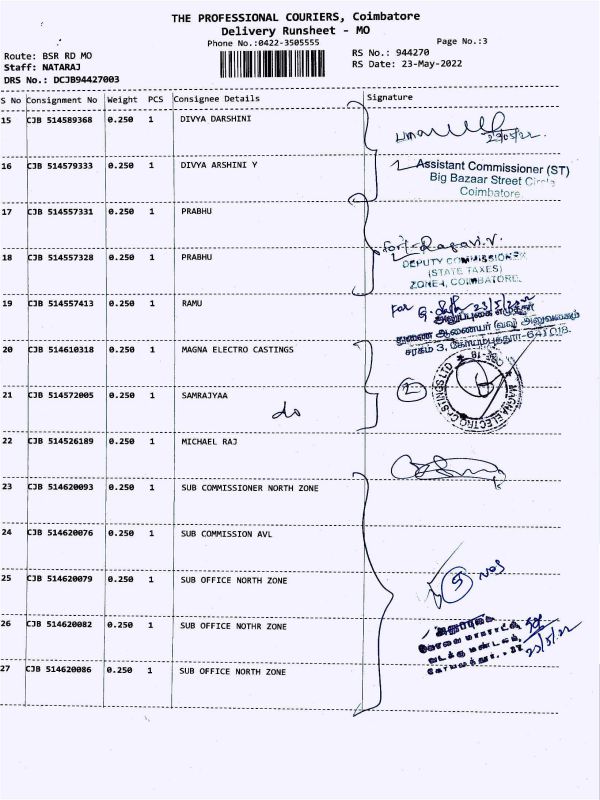 THE PROFESSIONAL COURIERS, Coimbatore
Delivery Runsheet - MO
Phone No.:0422-3505555
Page No.:3
Route: BSR RD MO
RS No.: 944270
Staff: NATARAJ
RS Date: 23-May-2022
DRS No.: DCJB94427003
S No Consignment No Weight PCS Consignee Details Signature
15 CJB 514589368 0.250 1 DIVYA DARSHINI
23/05/22
16 CJB 514579333 0.250 1 DIVYA ARSHINI Y
Assistant Commissioner (ST)
Big Bazaar Street Circle
Coimbatore.
17 CJB 514557331 0.250 1 PRABHU
for Ragavi.V.
18 CJB 514557328 0.250 1 PRABHU
DEPUTY COMMISSIONER
(STATE TAXES)
ZONE-I, COIMBATORE.
19 CJB 514557413 0.250 1 RAMU
For G. 23/5/2022
துணை ஆணையர் (வவ) அலுவலகம்
சரகம் 3, கோயம்புத்தூர்-641018.
20 CJB 514610318 0.250 1 MAGNA ELECTRO CASTINGS
MAGNA ELECTRO CASTINGS LTD
2
21 CJB 514572005 0.250 1 SAMRAJYAA
do
22 CJB 514526189 0.250 1 MICHAEL RAJ
23 CJB 514620093 0.250 1 SUB COMMISSIONER NORTH ZONE
24 CJB 514620076 0.250 1 SUB COMMISSION AVL
25 CJB 514620079 0.250 1 SUB OFFICE NORTH ZONE
5 Nos
26 CJB 514620082 0.250 1 SUB OFFICE NOTHR ZONE
வடக்கு மண்டலம்,
23/5/22
27 CJB 514620086 0.250 1 SUB OFFICE NORTH ZONE